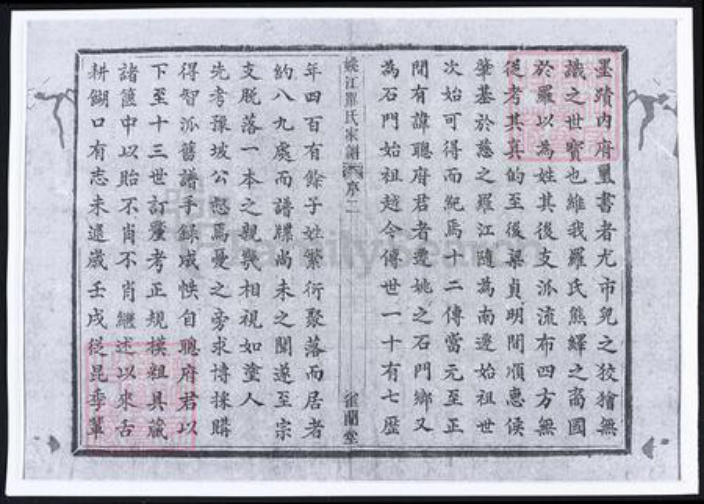 墨蹟内府璽書者尤市兒之狡獪無
識之世寳也維我羅氏熊繹之裔國
於羅以為姓其後支派流布四方無
從考其真的至後梁貞明間順惠侯
肇基於慈之羅江随為南遷始祖世
次始可得而紀焉十二傳當元至正
間有諱聰府君者遷姚之石門鄉又
為石門始祖越今傳世一十有七歴
姚江羅氏家譜 序二
年四百有餘子姓繁衍聚落而居者
約八九處而譜牒尚未之闢遂至宗
支脱落一本之親幾相視如塗人
先考豫坡公惄焉憂之旁求博採購
得智派舊譜手録成帙自聰府君以
下至十三世訂釐考正規模粗具蔵
諸篋中以貽不肖不肖繼述以來舌
耕餬口有志未逮歲壬戌從昆季輩